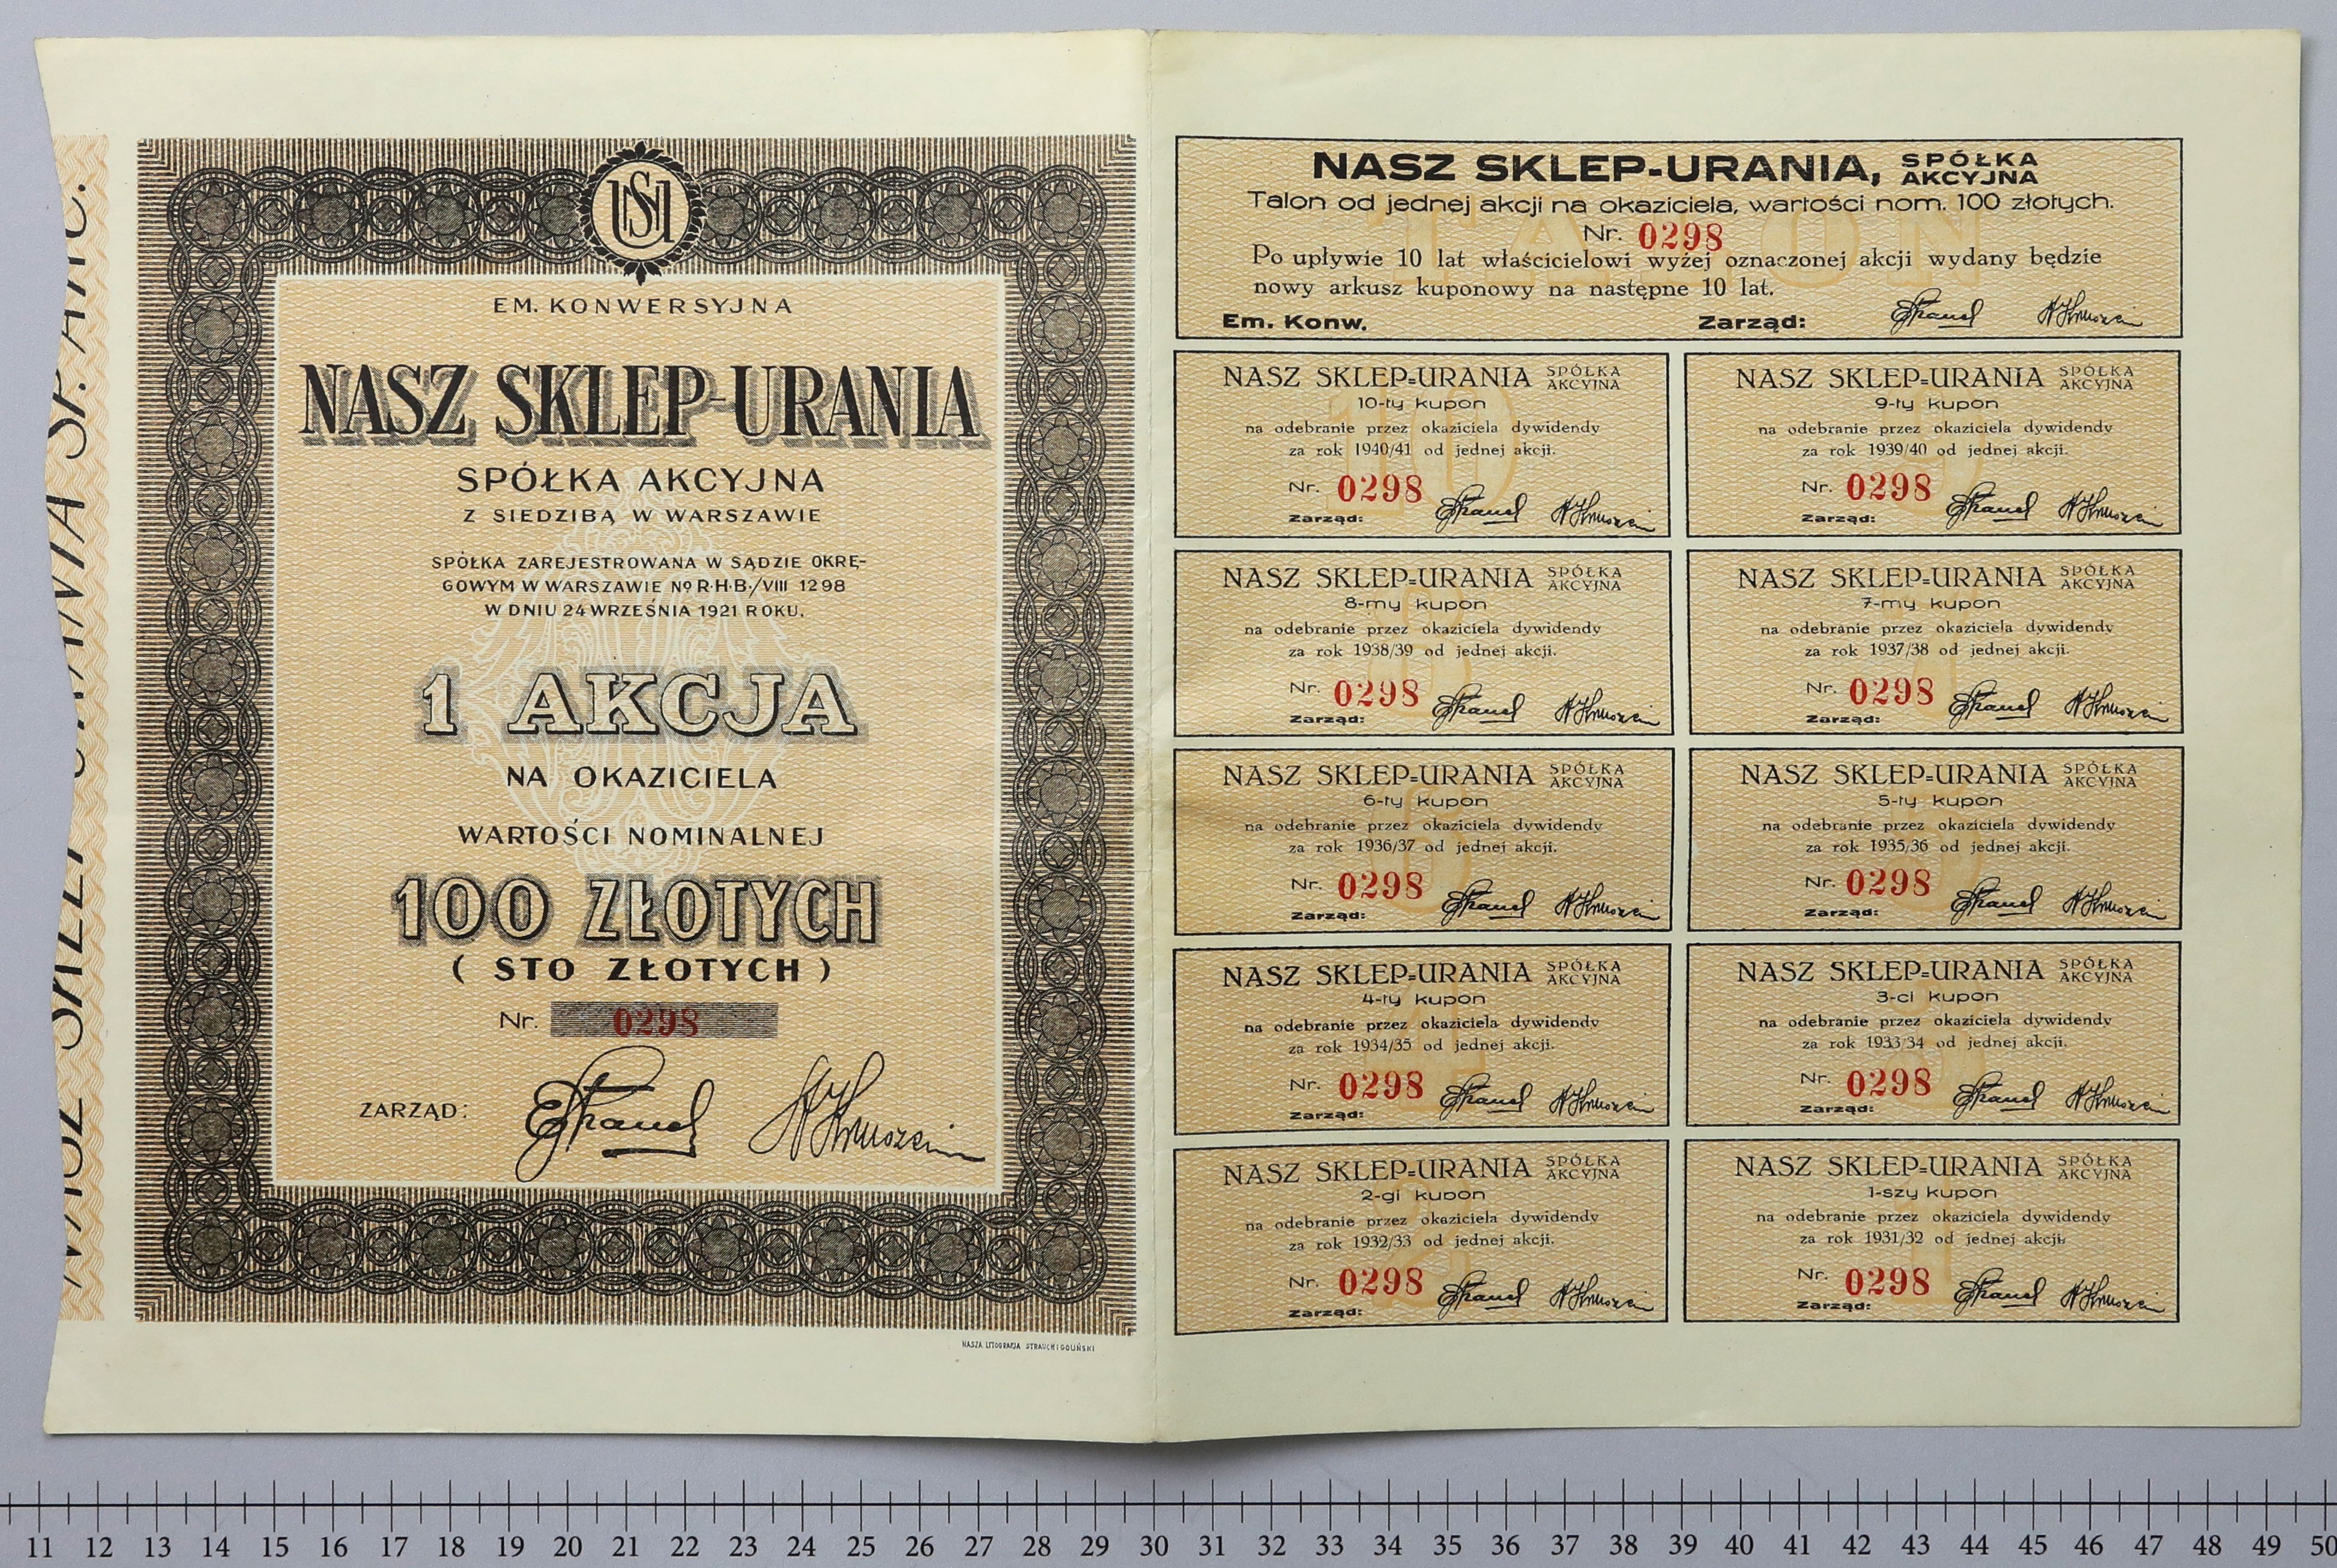 NASZ SKLEP-URANIA SP. AKC.
USN
EM. KONWERSYJNA
NASZ SKLEP-URANIA
SPÓŁKA AKCYJNA
Z SIEDZIBĄ W WARSZAWIE
SPÓŁKA ZAREJESTROWANA W SĄDZIE OKRĘ-
GOWYM W WARSZAWIE No R·H·B·/VIII 1298
W DNIU 24 WRZEŚNIA 1921 ROKU.
1 AKCJA
NA OKAZICIELA
WARTOŚCI NOMINALNEJ
100 ZŁOTYCH
( STO ZŁOTYCH )
Nr. 0298
ZARZĄD:
NASZA LITOGRAFJA STRAUCH I GOLIŃSKI
NASZ SKLEP-URANIA, SPÓŁKA AKCYJNA
Talon od jednej akcji na okaziciela, wartości nom. 100 złotych.
TALON
Nr. 0298
Po upływie 10 lat właścicielowi wyżej oznaczonej akcji wydany będzie
nowy arkusz kuponowy na następne 10 lat.
Em. Konw. Zarząd:
NASZ SKLEP-URANIA SPÓŁKA AKCYJNA
10-ty kupon
na odebranie przez okaziciela dywidendy
za rok 1940/41 od jednej akcji.
Nr. 0298
Zarząd:
NASZ SKLEP-URANIA SPÓŁKA AKCYJNA
9-ty kupon
na odebranie przez okaziciela dywidendy
za rok 1939/40 od jednej akcji.
Nr. 0298
Zarząd:
NASZ SKLEP-URANIA SPÓŁKA AKCYJNA
8-my kupon
na odebranie przez okaziciela dywidendy
za rok 1938/39 od jednej akcji.
Nr. 0298
Zarząd:
NASZ SKLEP-URANIA SPÓŁKA AKCYJNA
7-my kupon
na odebranie przez okaziciela dywidendy
za rok 1937/38 od jednej akcji.
Nr. 0298
Zarząd:
NASZ SKLEP-URANIA SPÓŁKA AKCYJNA
6-ty kupon
na odebranie przez okaziciela dywidendy
za rok 1936/37 od jednej akcji.
Nr. 0298
Zarząd:
NASZ SKLEP-URANIA SPÓŁKA AKCYJNA
5-ty kupon
na odebranie przez okaziciela dywidendy
za rok 1935/36 od jednej akcji.
Nr. 0298
Zarząd:
NASZ SKLEP-URANIA SPÓŁKA AKCYJNA
4-ty kupon
na odebranie przez okaziciela dywidendy
za rok 1934/35 od jednej akcji.
Nr. 0298
Zarząd:
NASZ SKLEP-URANIA SPÓŁKA AKCYJNA
3-ci kupon
na odebranie przez okaziciela dywidendy
za rok 1933/34 od jednej akcji.
Nr. 0298
Zarząd:
NASZ SKLEP-URANIA SPÓŁKA AKCYJNA
2-gi kupon
na odebranie przez okaziciela dywidendy
za rok 1932/33 od jednej akcji.
Nr. 0298
Zarząd:
NASZ SKLEP-URANIA SPÓŁKA AKCYJNA
1-szy kupon
na odebranie przez okaziciela dywidendy
za rok 1931/32 od jednej akcji.
Nr. 0298
Zarząd:
11 12 13 14 15 16 17 18 19 20 21 22 23 24 25 26 27 28 29 30 31 32 33 34 35 36 37 38 39 40 41 42 43 44 45 46 47 48 49 50